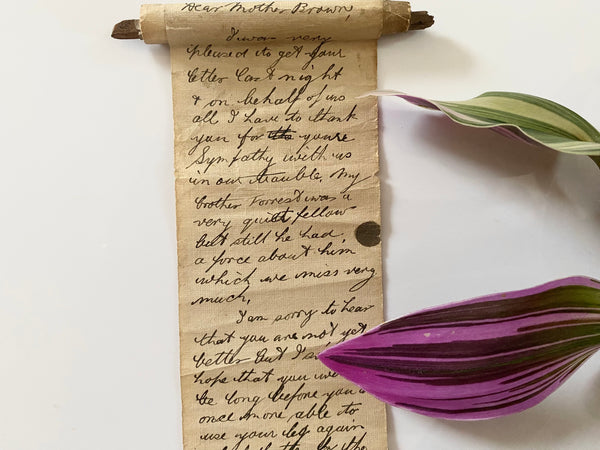 Dear Mother Brown,
I was very
pleased to get your
letter last night
& on behalf of us
all I have to thank
you for the youre
Sympathy with us
in our trauble. My
brother Forrest was a
very quiet fellow
but still he had
a force about him
which we miss very
much,
I am sorry to hear
that you are not yet
better but I
hope that you
be long before you
once more able to
use your leg again
the